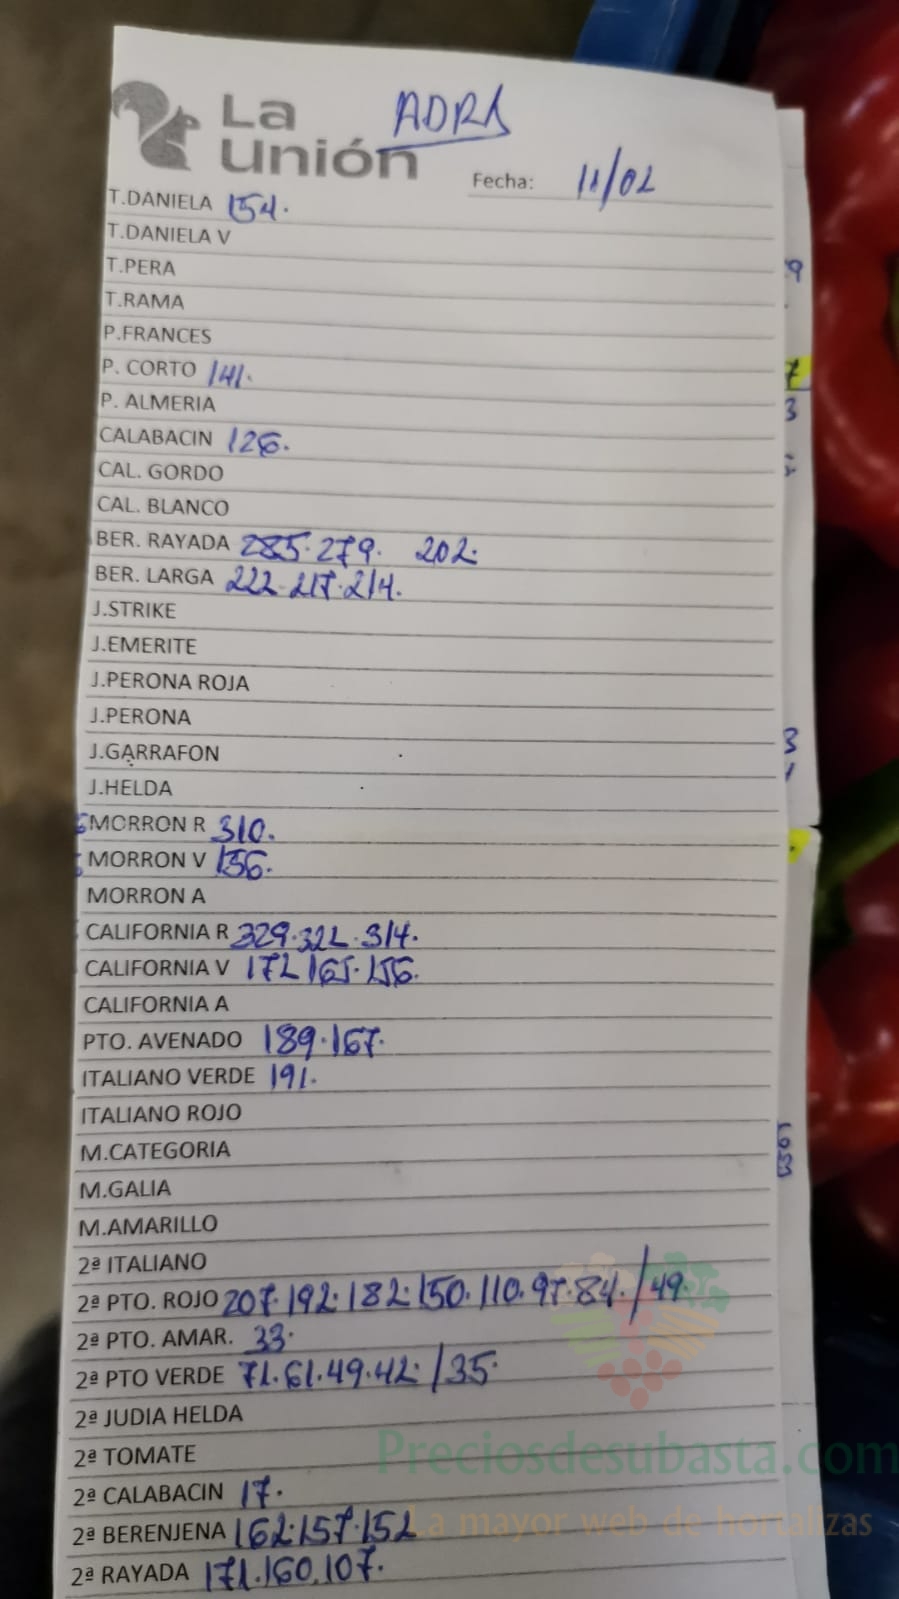 La Unión ADRA
Fecha: 11/02
T.DANELA 154.
T.DANIELA V
T.PERA
T.RAMA
P.FRANCES
P. CORTO 141.
P. ALMERIA
CALABACIN 126.
CAL. GORDO
CAL. BLANCO
BER. RAYADA 285.279. 202.
BER. LARGA 222.217.214.
J.STRIKE
J.EMERITE
J.PERONA ROJA
J.PERONA
J.GARRAFON
J.HELDA
MORRON R 310.
MORRON V 156.
MORRON A
CALIFORNIA R 329.322.314.
CALIFORNIA V 172 165.156.
CALIFORNIA A
PTO. AVENADO 189.167.
ITALIANO VERDE 191.
ITALIANO ROJO
M.CATEGORIA
M.GALIA
M.AMARILLO
2ª ITALIANO
2ª PTO. ROJO 207.192.182.150.110.97.84./49.
2ª PTO. AMAR. 33.
2ª PTO VERDE 71.61.49.42./35.
2ª JUDIA HELDA
2ª TOMATE
Preciosdesubasta.com
2ª CALABACIN 17.
2ª BERENJENA 162.157.152
La mayor web de hortalizas
2ª RAYADA 171.160.107.